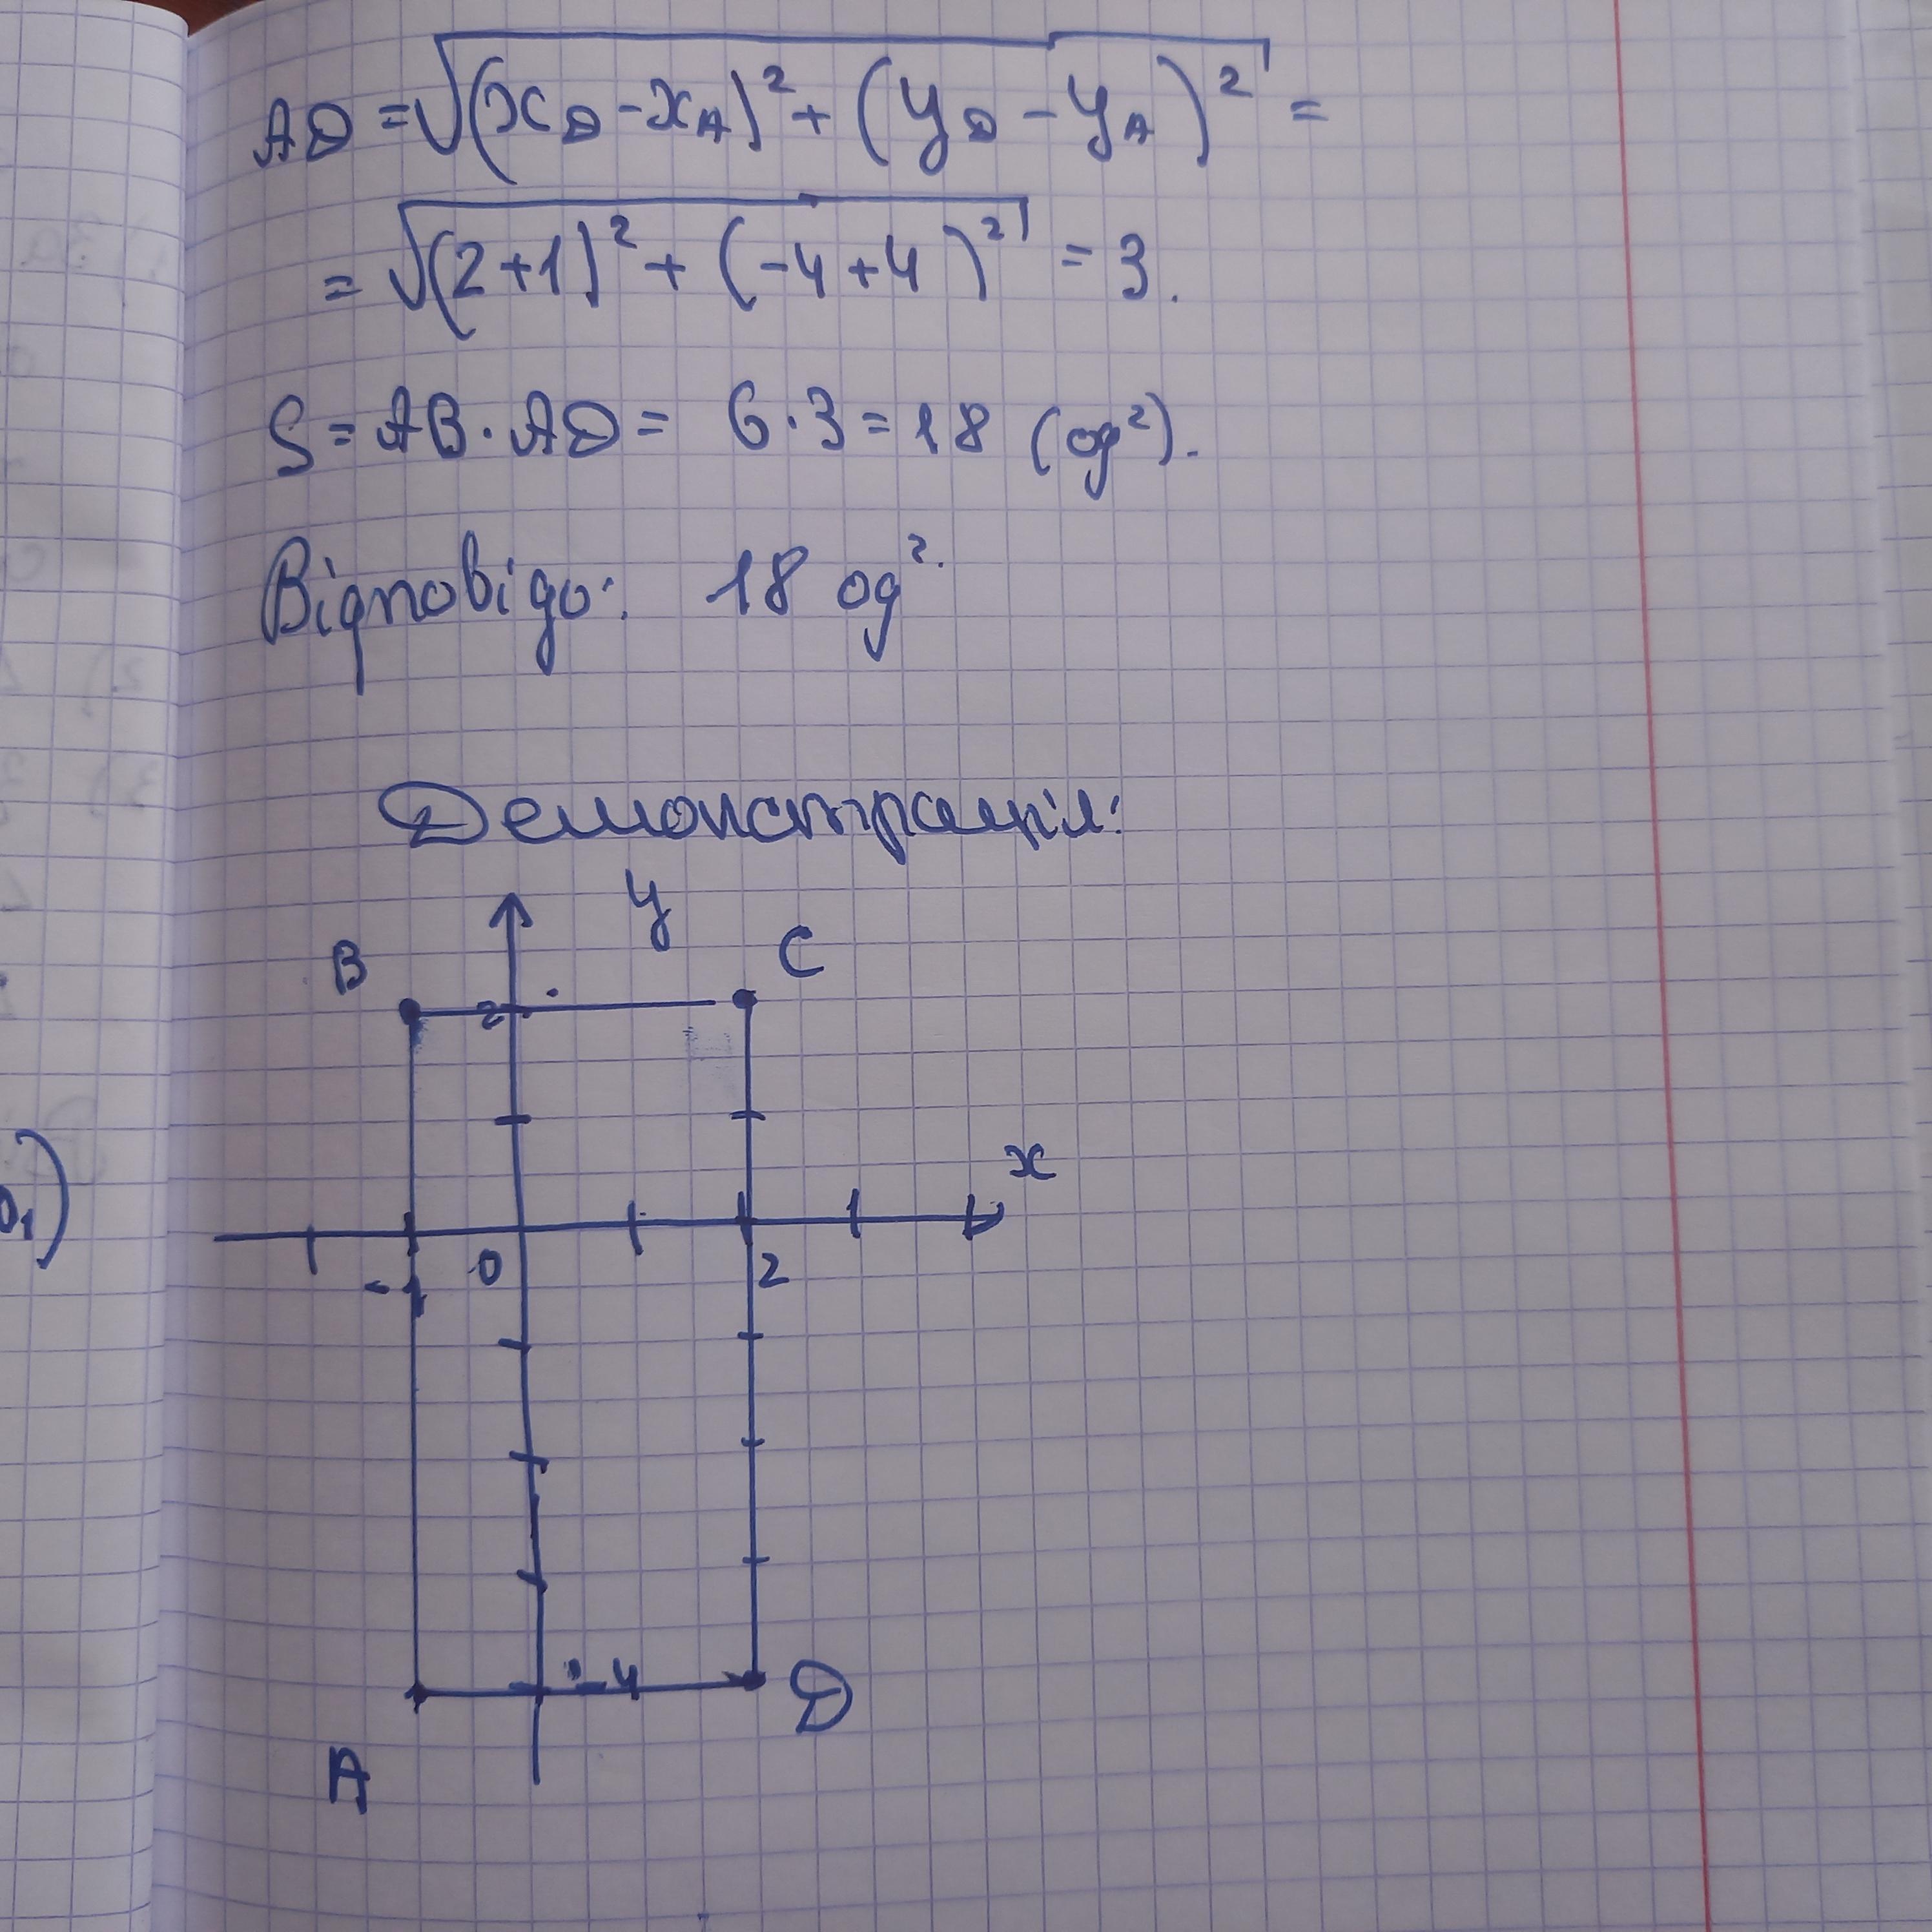 AD = √((x_D - x_A)² + (y_D - y_A)²) =
= √((2+1)² + (-4+4)²) = 3.
S = AB · AD = 6 · 3 = 18 (од²).
Відповідь: 18 од².
Демонстрація:
y
B C
2
x
-1 0 2
-4 D
A